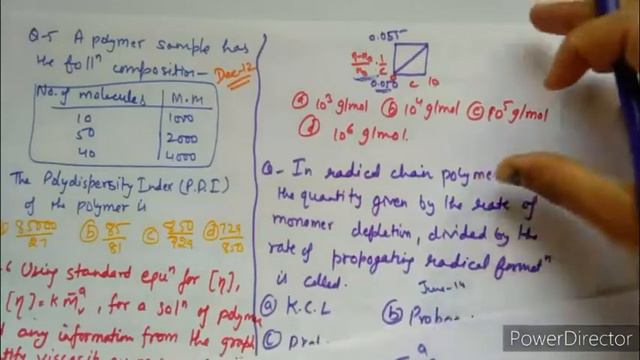 Q-5 A polymer sample has
the foll^n composition — Dec-12
No. of molecules M.M
10 1000
50 2000
40 4000
The Polydispersity Index (P.D.I)
of the polymer is
85000/27 (b) 85/81 (c) 850/729 (d) 729/850
.6 Using standard equ^n for [η],
[η] = K M̄_v^a, for a sol^n of polyme
any information from the graph
0.055
η-η₀/η₀ · 1/C
0.050 C 10
(a) 10³ g/mol (b) 10⁴ g/mol (c) 10⁵ g/mol
(d) 10⁶ g/mol.
Q- In radical chain polyme
the quantity given by the rate of
monomer depletion, divided by the
rate of propogating radical format^n
is called.
June-14
(a) K.C.L (b) Proba
(c)
PowerDirector